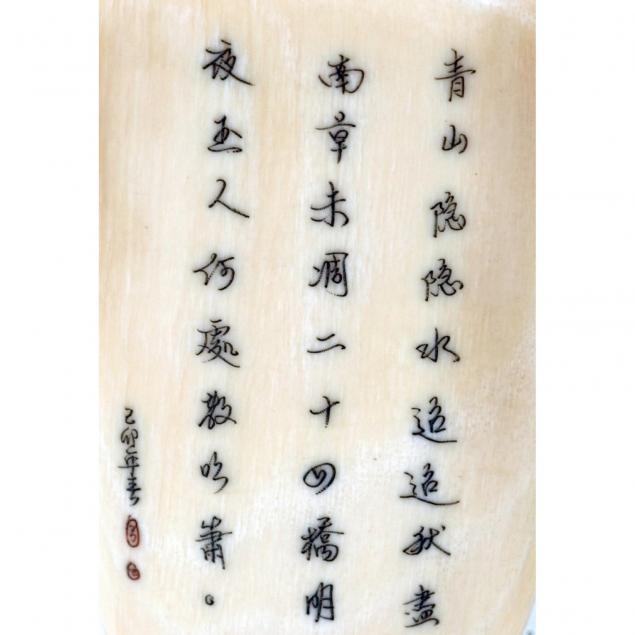 青山隐隐水迢迢秋盡
南草未凋二十四橋明
夜玉人何處教吹蕭。
己卯年春